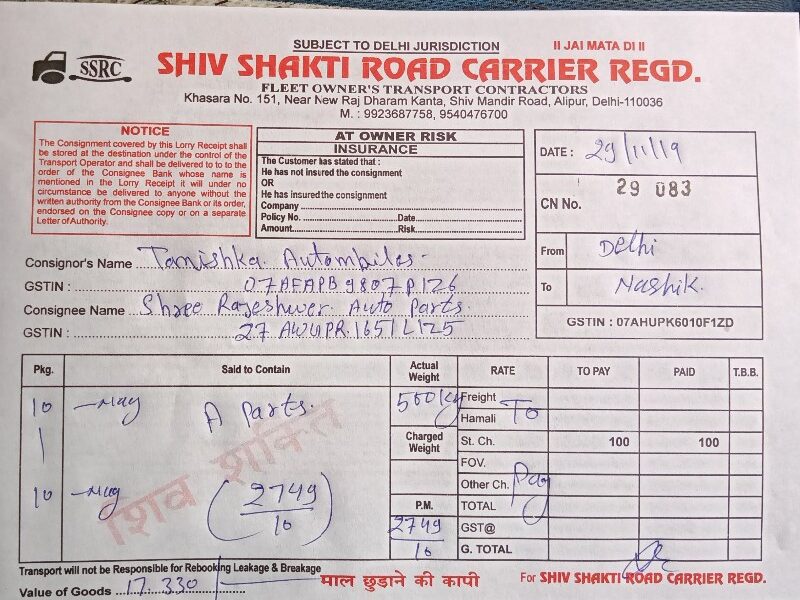 SUBJECT TO DELHI JURISDICTION
II JAI MATA DI II
SSRC
SHIV SHAKTI ROAD CARRIER REGD.
FLEET OWNER'S TRANSPORT CONTRACTORS
Khasara No. 151, Near New Raj Dharam Kanta, Shiv Mandir Road, Alipur, Delhi-110036
M. : 9923687758, 9540476700
NOTICE
The Consignment covered by this Lorry Receipt shall
be stored at the destination under the control of the
Transport Operator and shall be delivered to to to the
order of the Consignee Bank whose name is
mentioned in the Lorry Receipt it will under no
circumstance be delivered to anyone without the
written authority from the Consignee Bank or its order,
endorsed on the Consignee copy or on a separate
Letter of Authority.
AT OWNER RISK
INSURANCE
The Customer has stated that :
He has not insured the consignment
OR
He has insured the consignment
Company
Policy No. Date
Amount Risk
DATE : 29/11/19
CN No. 29 083
From Delhi
To Nashik.
GSTIN : 07AHUPK6010F1ZD
Consignor's Name Tanishka Autombiles
GSTIN : 07AFAPB9807P1Z6
Consignee Name Shree Rajeshwer Auto Parts.
GSTIN : 27AWUPR1651L1Z5
Pkg. Said to Contain Actual Weight RATE TO PAY PAID T.B.B.
10 A Parts. 500Kg Freight
Hamali To
Charged Weight St. Ch. 100 100
FOV.
10 2749/10 Other Ch. Pay
P.M. TOTAL
2749/10 GST@
G. TOTAL
शिव शक्ति
Transport will not be Responsible for Rebooking Leakage & Breakage
Value of Goods 17330/
माल छुडाने की कापी
For SHIV SHAKTI ROAD CARRIER REGD.